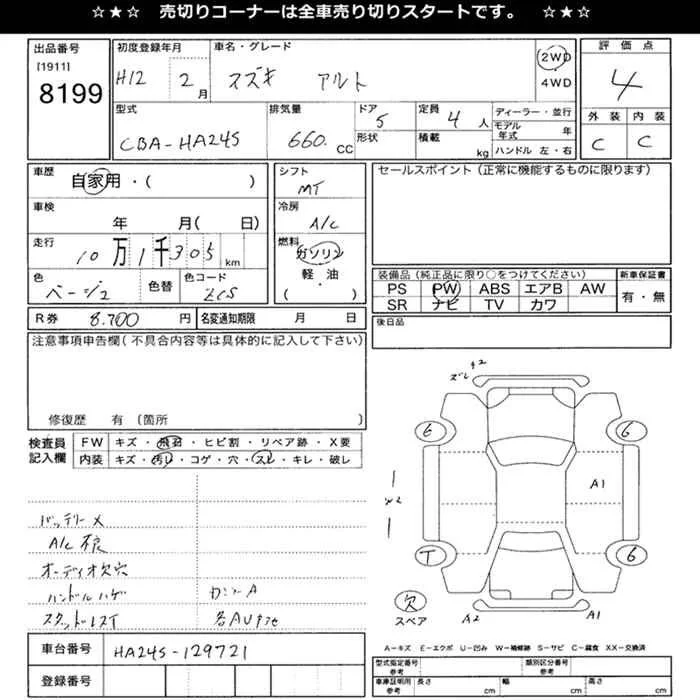 ☆ ★ ☆ 売切りコーナーは全車売り切りスタートです。 ☆ ★ ☆
出品番号
[1911]
8199
初度登録年月
H12 2月
車名・グレード
スズキ アルト
2WD
4WD
評価点
4
外装 内装
C C
型式
CBA-HA24S
排気量
660. CC
ドア
5
形状
定員
4人
積載
kg
ディーラー・並行
モデル年式 年
ハンドル 左・右
車歴
自家用・( )
車検
年 月( 日)
走行
10万1千305km
色
ベージュ
色替
色コード
ZCS
シフト
MT
冷房
A/C
燃料
ガソリン
軽・油
( )
セールスポイント(正常に機能するものに限ります)
装備品(純正品に限り○をつけてください)
PS PW ABS エアB AW
SR ナビ TV カワ
新車保証書
有・無
R券 8.700円
名変通知期限 月 日
後日品
注意事項申告欄(不具合内容等は具体的に記入して下さい)
修復歴 有 〔箇所 〕
検査員記入欄
FW キズ・飛石・ヒビ割・リペア跡・X要
内装 キズ・汚れ・コゲ・穴・スレ・キレ・破レ
バッテリーメ
A/C不良
オーディオ欠穴
ハンドルハゲ
ズレ
A2
6 6
A1
T 6
欠
スペア
A2 A1
A-キズ E-エクボ U-凹み W-補修跡 S-サビ C-腐食 XX-交換済
車台番号 HA24S-129721
登録番号
型式指定番号 参考
類別区分番号 参考
車庫証明用 参考
長さ cm 幅 cm 高さ cm